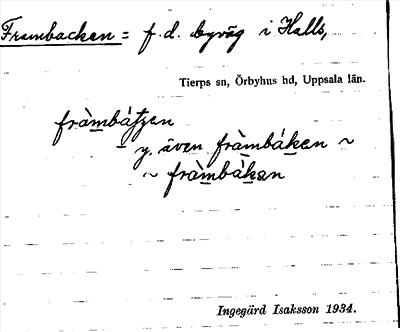 Frambacken = f. d. byväg i Halls,
Tierps sn, Örbyhus hd, Uppsala län.
fràmbátzen
y. även fràmbáken ~
~ fràmbàken
Ingegärd Isaksson 1934.